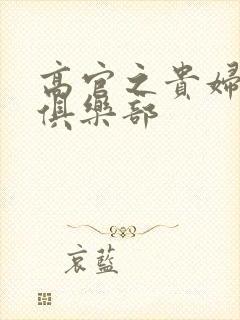 高官之貴婦
俱樂部
哀藍